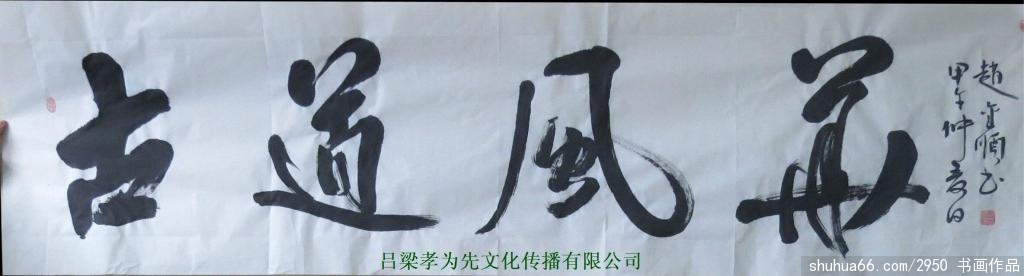 古道風華
趙金順书
甲午仲夏日
吕梁孝为先文化传播有限公司
shuhua66.com/2950 书画作品